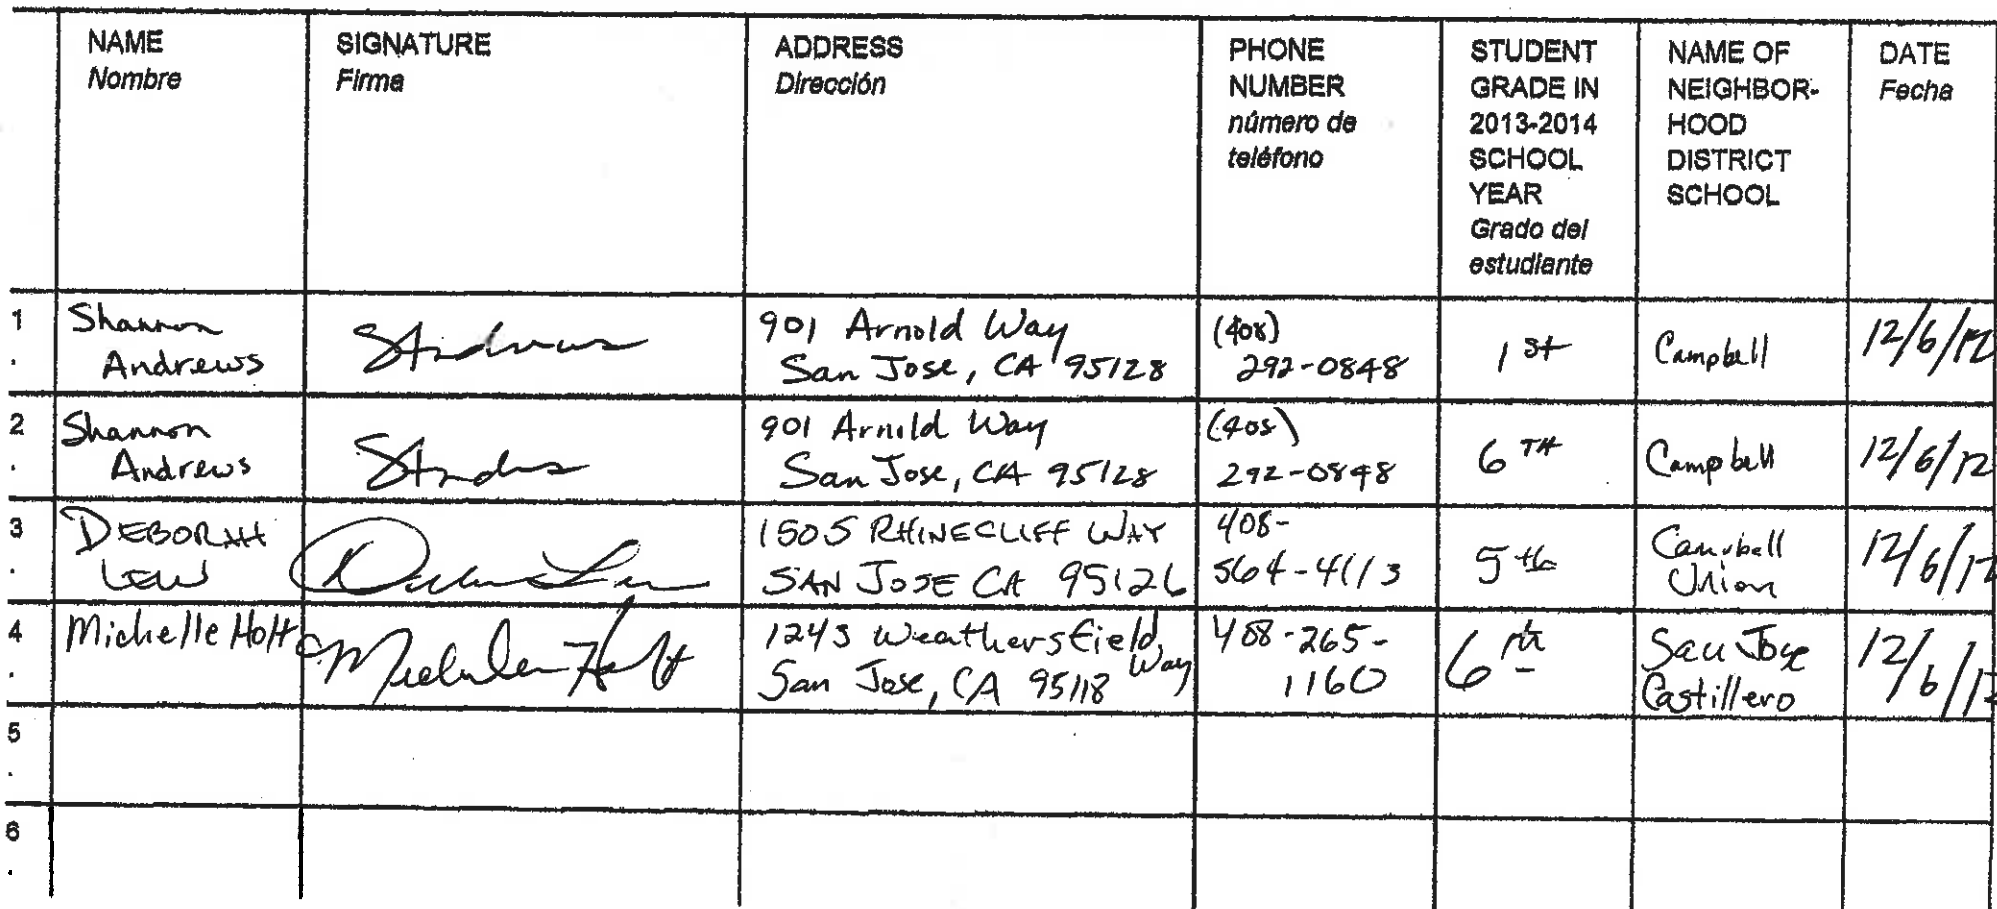 NAME
Nombre
SIGNATURE
Firma
ADDRESS
Dirección
PHONE
NUMBER
número de
teléfono
STUDENT
GRADE IN
2013-2014
SCHOOL
YEAR
Grado del
estudiante
NAME OF
NEIGHBOR-
HOOD
DISTRICT
SCHOOL
DATE
Fecha
1
.
Shannon
Andrews
901 Arnold Way
San Jose, CA 95128
(408)
292-0848
1st
Campbell
12/6/12
2
.
Shannon
Andrews
901 Arnold Way
San Jose, CA 95128
(408)
292-0848
6TH
Campbell
12/6/12
3
.
DEBORAH
LEW
1505 RHINECLIFF WAY
SAN JOSE CA 95126
408-
564-4113
5th
Campbell
Union
12/6/12
4
.
Michelle Holt
Michelle Holt
1243 Weathersfield
Way
San Jose, CA 95118
408-265-
1160
6th
San Jose
Castillero
12/6/12
5
.
6
.